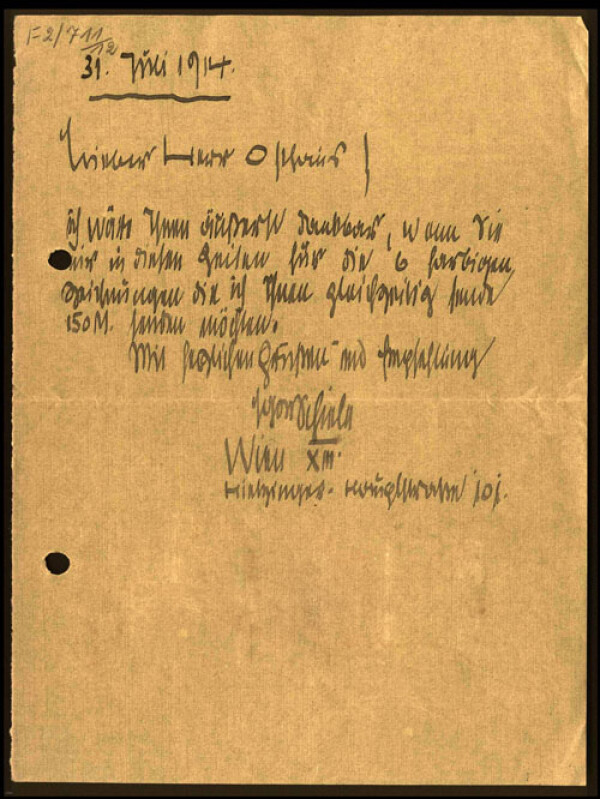 F2/711/12
31. Juli 1914.
Lieber Herr Osthaus!
ich wäre Ihnen äußerst dankbar, wenn Sie
mir in diesen Zeiten für die 6 farbigen
Zeichnungen die ich Ihnen gleichzeitig sende
150 M. senden möchten.
Mit herzlichen Grüssen und Empfehlung
Egon Schiele
Wien XIII.
Hietzinger-Hauptstrasse 101.